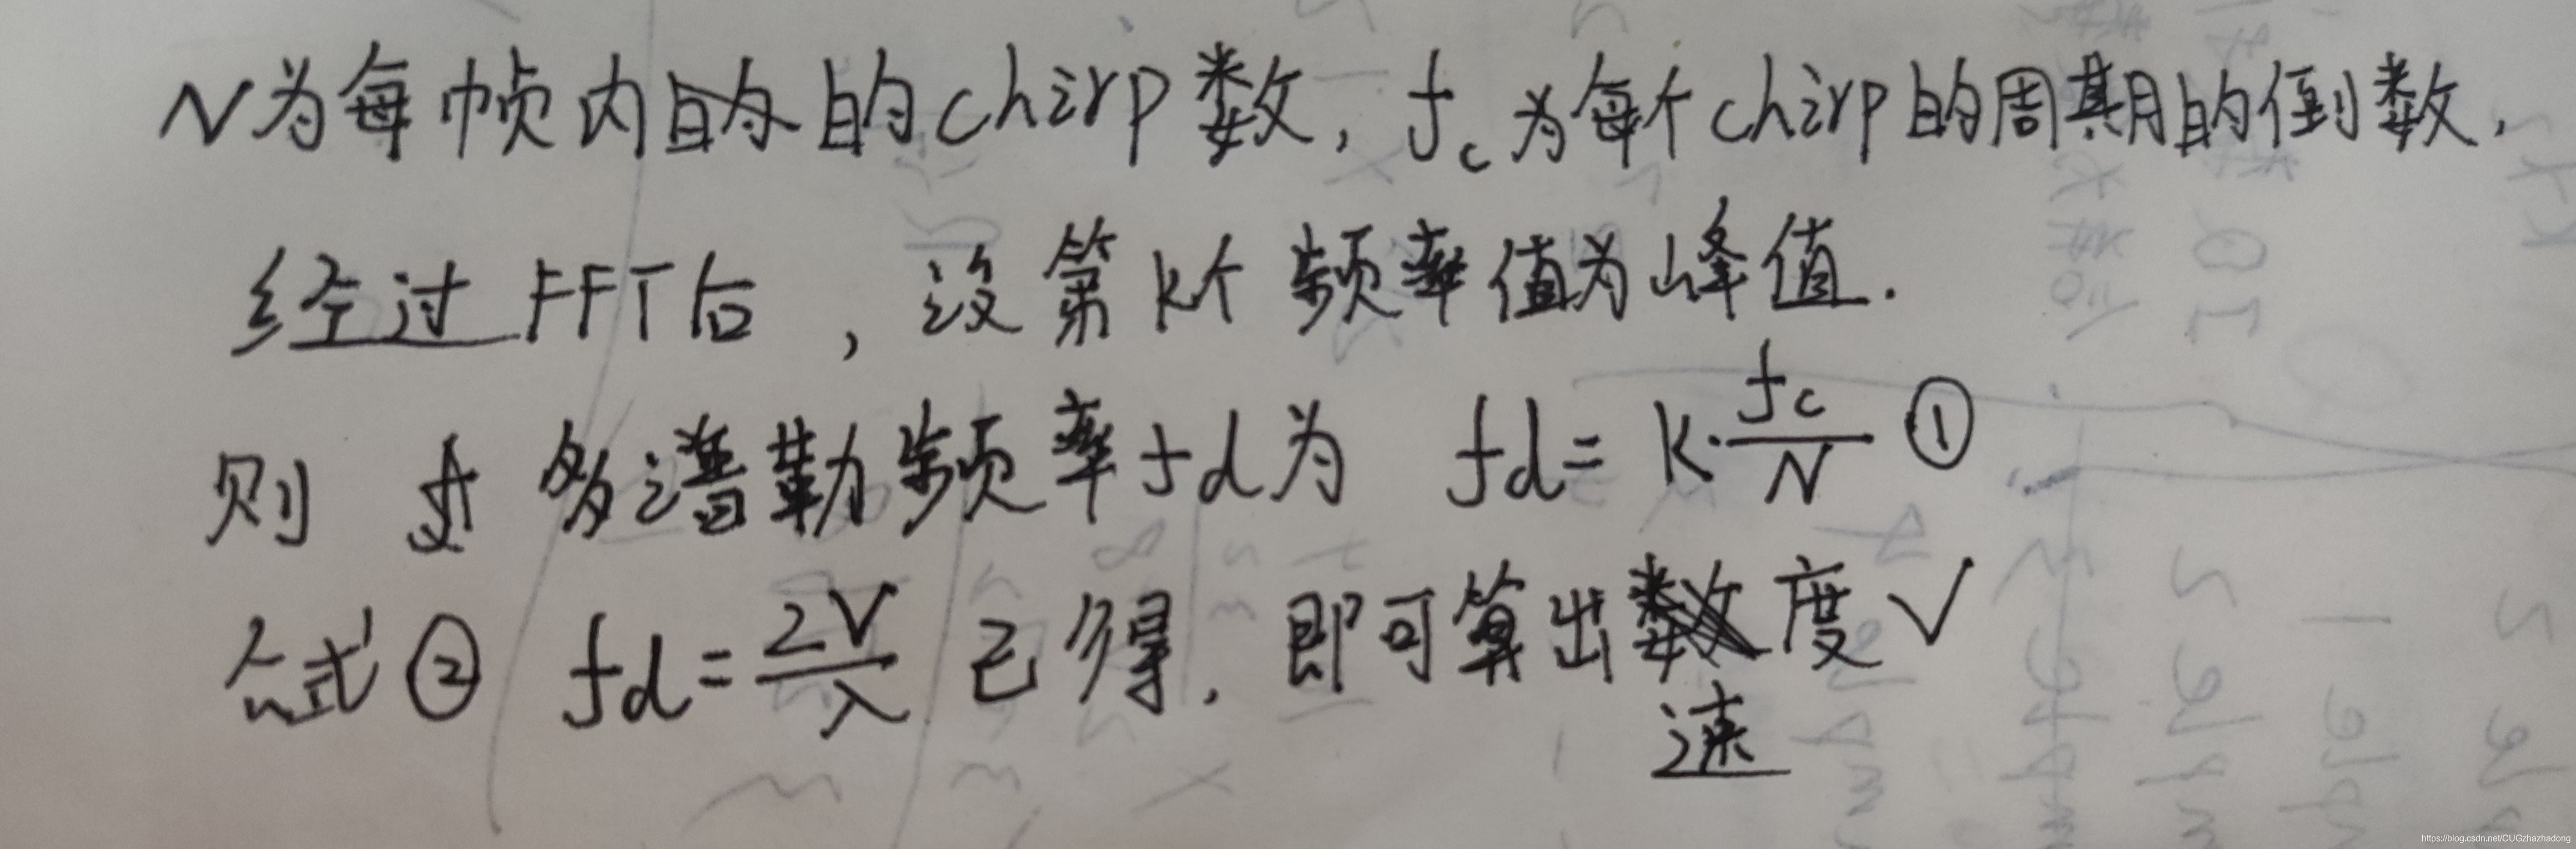 N为每帧内的的chirp数，fc为每个chirp的周期的倒数，
经过FFT后，设第k个频率值为峰值．
则 多谱勒频率fd为 fd = k·fc/N ①
公式② fd = 2V/λ 已得，即可算出速度V
https://blog.csdn.net/CUGzhazhadong